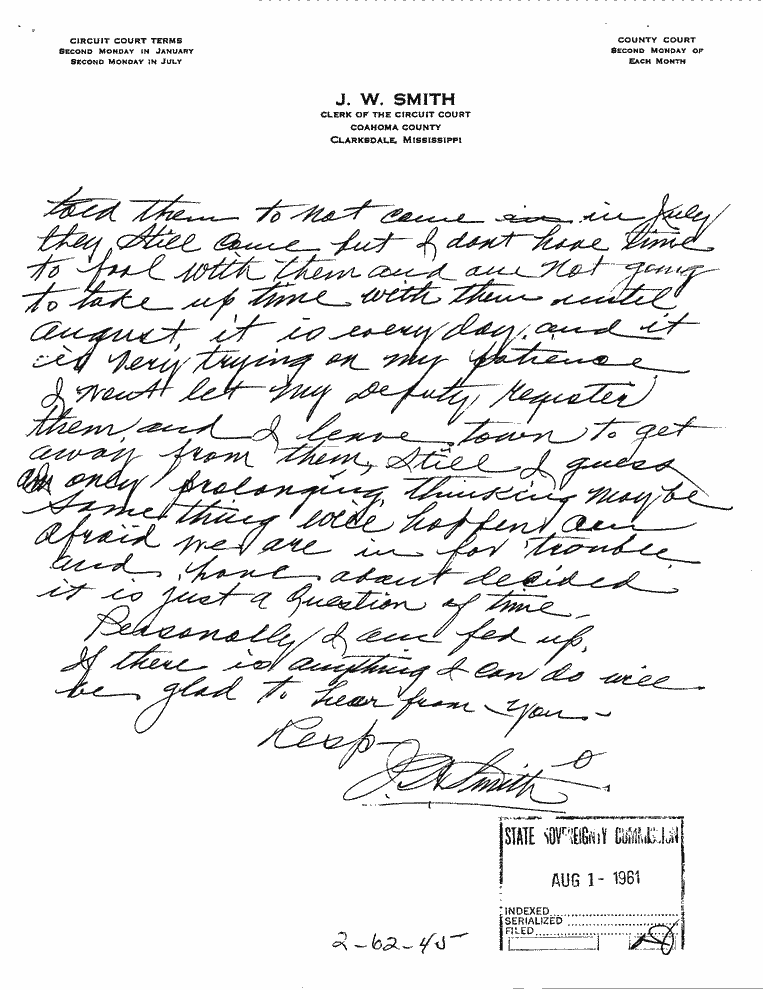 CIRCUIT COURT TERMS
SECOND MONDAY IN JANUARY
SECOND MONDAY IN JULY
COUNTY COURT
SECOND MONDAY OF
EACH MONTH
J. W. SMITH
CLERK OF THE CIRCUIT COURT
COAHOMA COUNTY
CLARKSDALE, MISSISSIPPI
told them to not come in in July
they still come but I dont have time
to fool with them and am not going
to take up time with them until
august, it is every day, and it
is very trying on my patience
I wont let my Deputy register
them, and I leave town to get
away from them, still I guess
am only prolonging, thinking may be
some thing will happen, am
afraid we are in for trouble
and have about decided
it is just a question of time -
Personally I am fed up.
If there is anything I can do will
be glad to hear from you -
Resp
J. W. Smith
STATE SOVEREIGNTY COMMISSION
AUG 1 - 1961
INDEXED
SERIALIZED
FILED
2-62-45